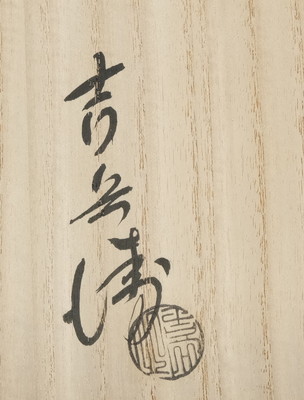 吉兵衛